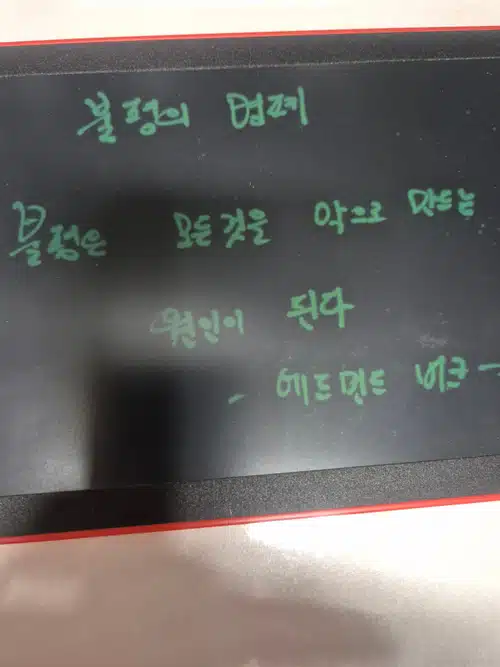 불평의
불평은 모든것을 악으로 만드는
원인이 된다
- 에드먼드 버크 -